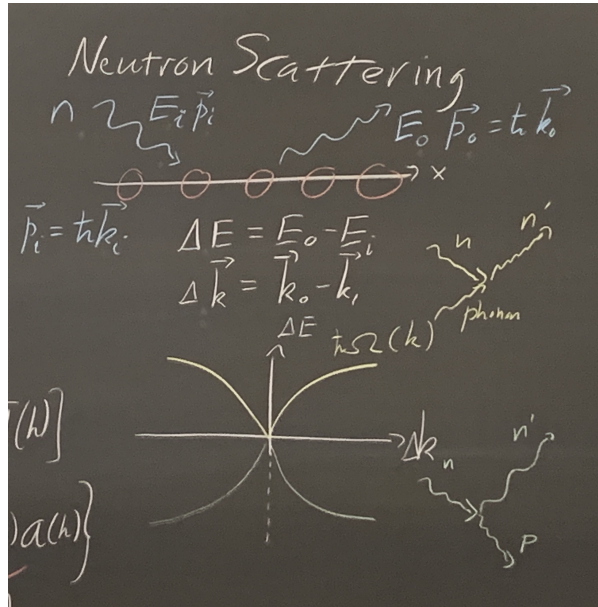 Neutron Scattering
n E⃗ᵢ p⃗ᵢ E₀ p⃗₀ = ħ k⃗₀
x
p⃗ᵢ = ħk⃗ᵢ
ΔE = E₀ - Eᵢ
Δk⃗ = k⃗₀ - k⃗ᵢ
n n'
phonon
ΔE
ħΩ(k)
(h)]
Δk
n n'
)a(h)}
P